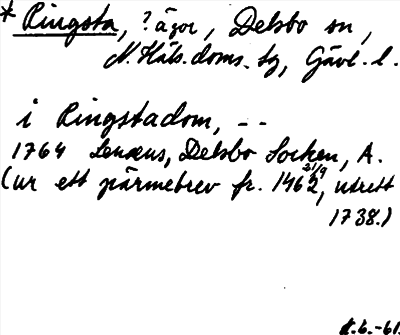 * Ringsta, ? ägor, Delsbo sn,
N. Häls. doms. sg, Gävl. l.
i Ringstadom, --
1764 Lenæus, Delsbo Socken, A.
(ur ett pärmebrev fr. 1462 21/9, utrett
1738.)
-61.